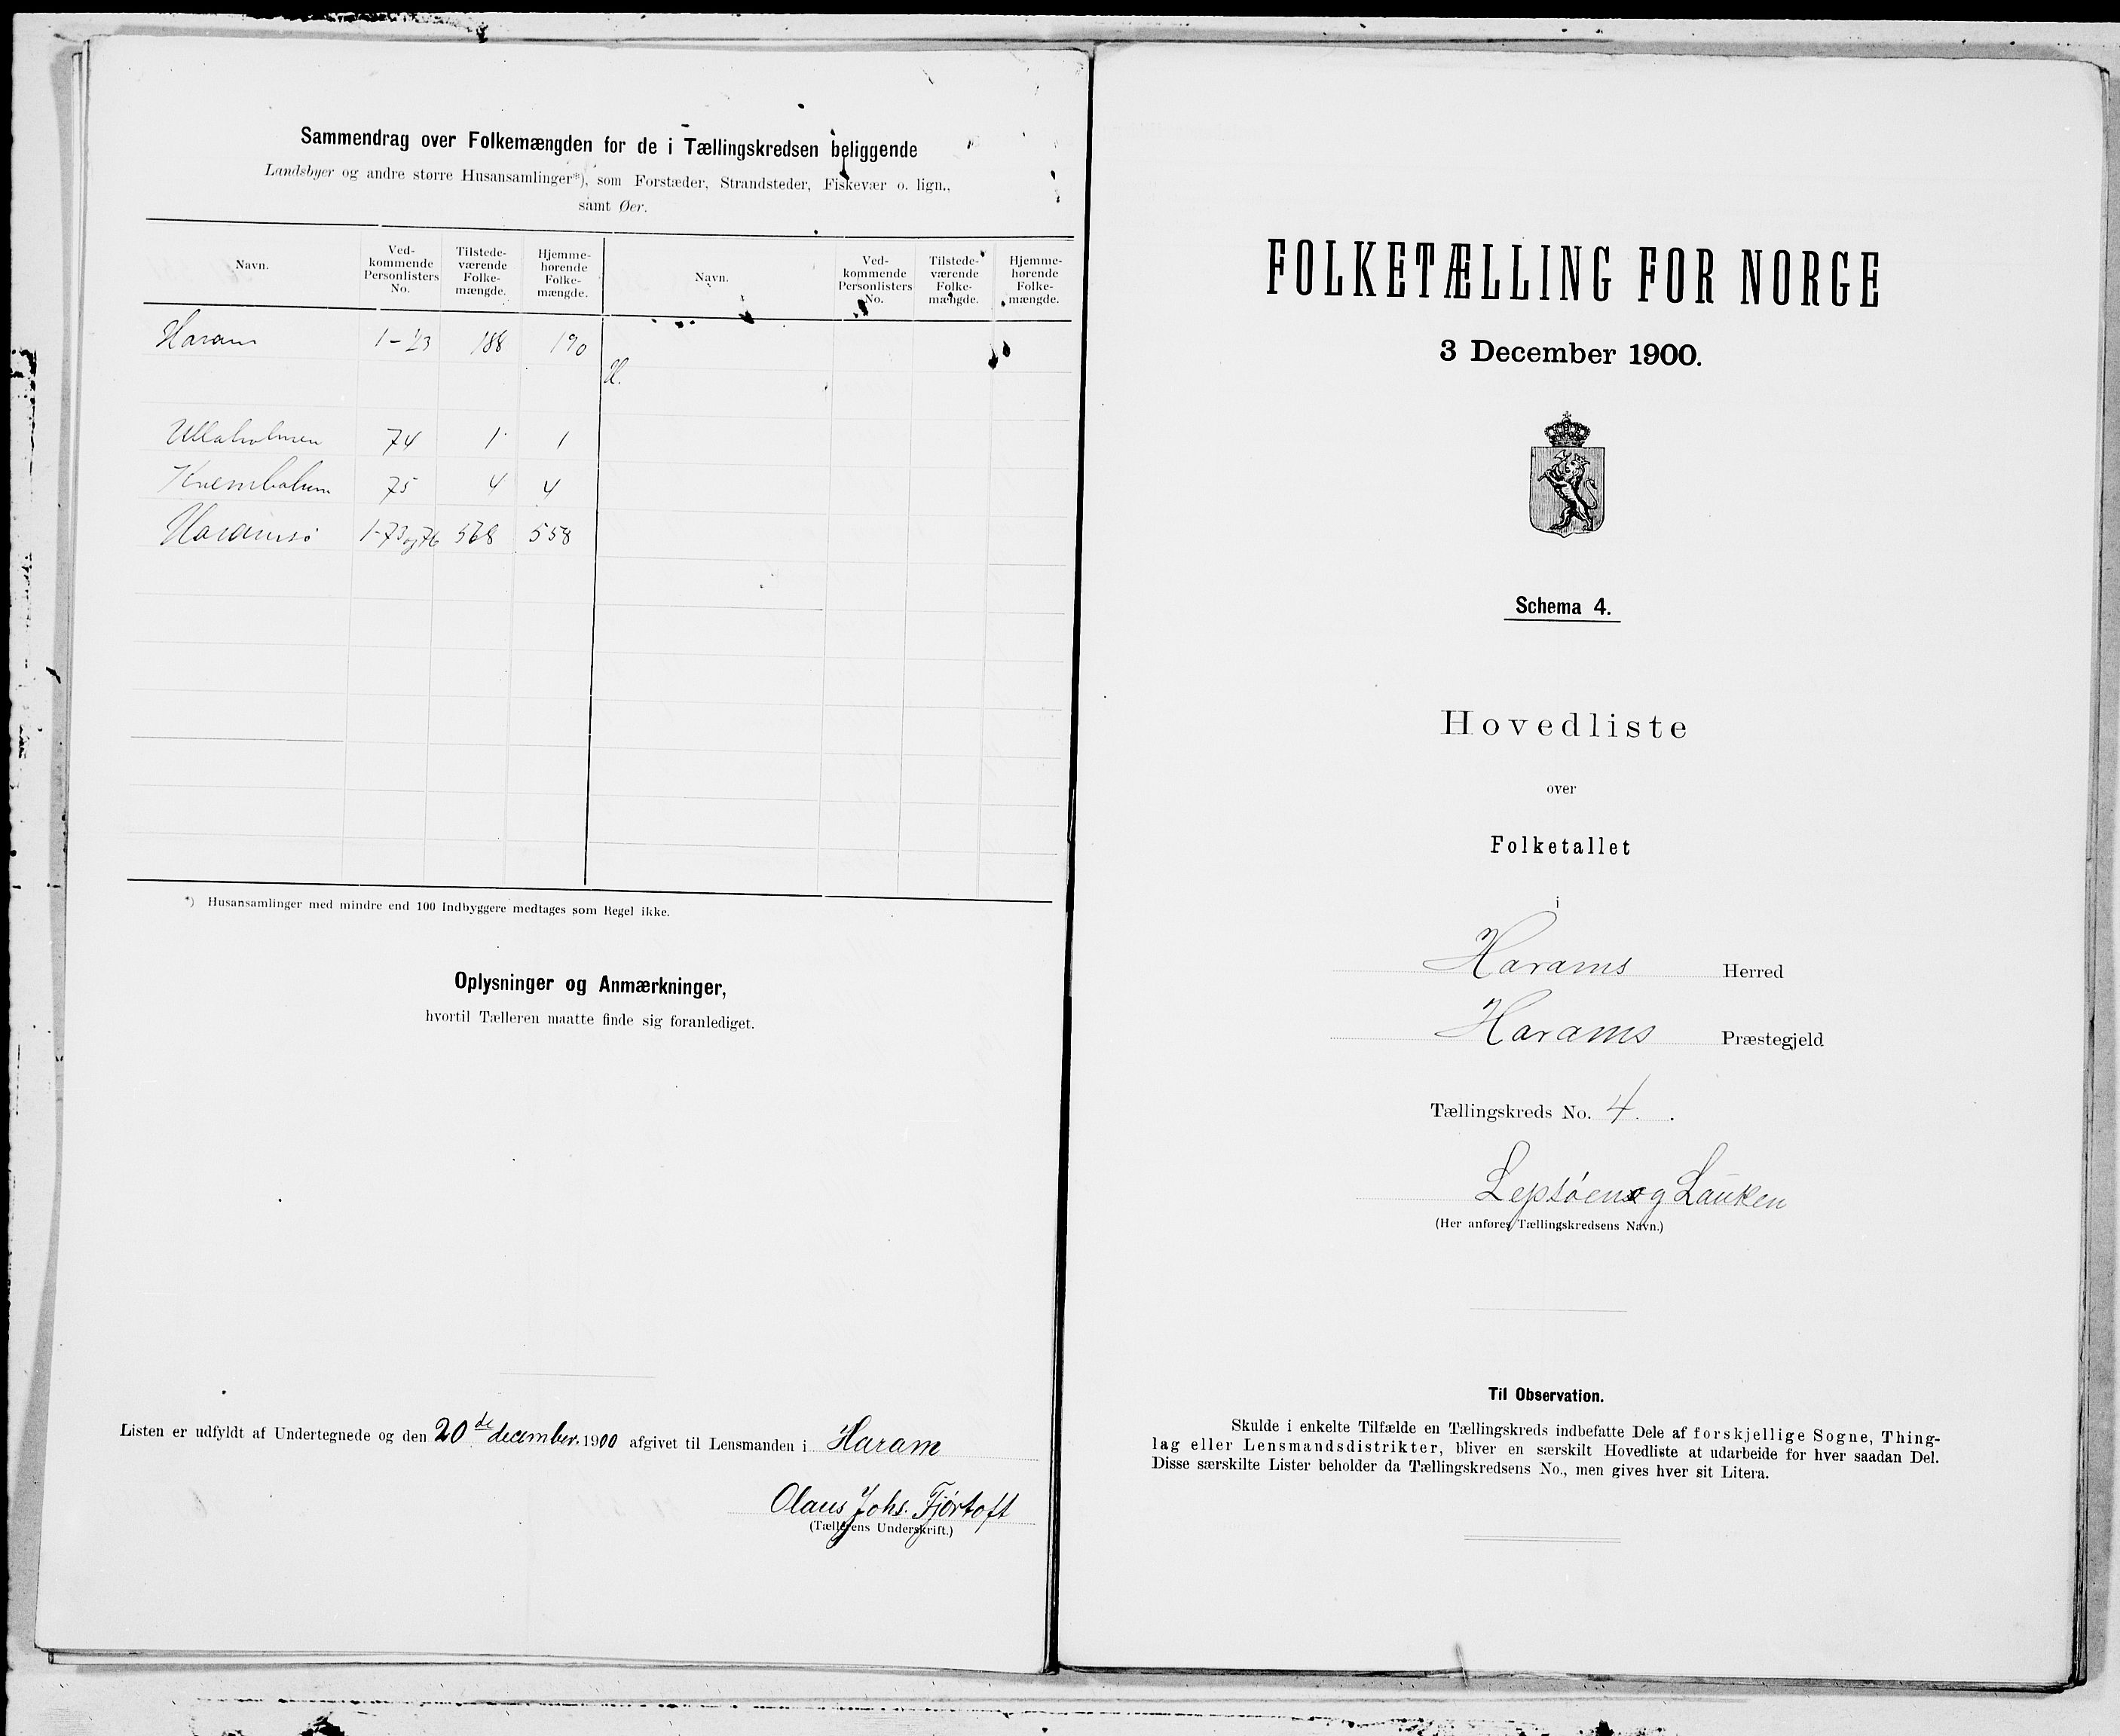 Sammendrag over Folkemængden for de i Tællingskredsen beliggende
Landsbyer og andre større Husansamlinger*), som Forstæder, Strandsteder, Fiskevær o. lign.,
samt Øer.
Navn. Ved-kommende Personlisters No. Tilstede-værende Folke-mængde. Hjemme-hørende Folke-mængde. Navn. Ved-kommende Personlisters No. Tilstede-værende Folke-mængde. Hjemme-hørende Folke-mængde.
Haram 1-23 188 190
H.
Ullaholmen 74 1 1
75 4 4
Haramsø 1-73 og 76 568 558
*) Husansamlinger med mindre end 100 Indbyggere medtages som Regel ikke.
Oplysninger og Anmærkninger,
hvortil Tælleren maatte finde sig foranlediget.
Listen er udfyldt af Undertegnede og den 20de december 1900 afgivet til Lensmanden i Haram
Olaus Johs. Fjørtoft
(Tællerens Underskrift.)
FOLKETÆLLING FOR NORGE
3 December 1900.
Schema 4.
Hovedliste
over
Folketallet
i
Harams Herred
Harams Præstegjeld
Tællingskreds No. 4.
Lepsøen og Lauken
(Her anføres Tællingskredsens Navn.)
Til Observation.
Skulde i enkelte Tilfælde en Tællingskreds indbefatte Dele af forskjellige Sogne, Thing-
lag eller Lensmandsdistrikter, bliver en særskilt Hovedliste at udarbeide for hver saadan Del.
Disse særskilte Lister beholder da Tællingskredsens No., men gives hver sit Litera.